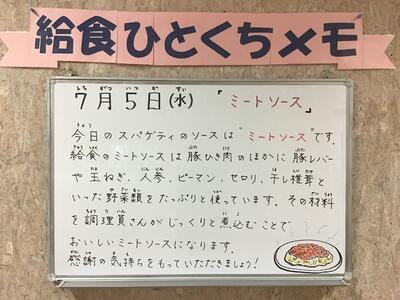 給食ひとくちメモ
7月5日(水) 「ミートソース」
今日のスパゲティのソースは"ミートソース"です.
給食のミートソースは豚ひき肉のほかに豚レバー
や玉ねぎ、人参、ピーマン、セロリ、干し椎茸と
いった野菜類をたっぷりと使っています. その材料
を調理員さんがじっくりと煮込むことで
おいしいミートソースになります.
感謝の気持ちをもっていただきましょう!